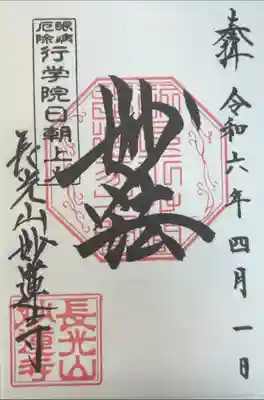 奉拝 令和六年四月一日
妙法
眼病
厄除
行学院日朝上人
長光山妙蓮寺
長光山
妙蓮寺